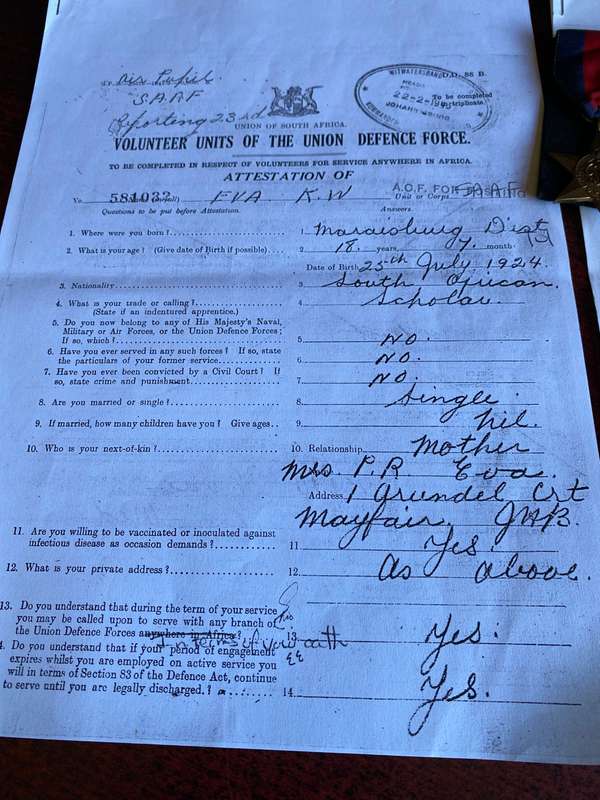 Air Pupil
S.A.A.F
Reporting 23rd
D.D. 88 B.
WITWATERSRAND
22-2-19
JOHANNESBURG
To be completed
in triplicate.
UNION OF SOUTH AFRICA.
VOLUNTEER UNITS OF THE UNION DEFENCE FORCE.
TO BE COMPLETED IN RESPECT OF VOLUNTEERS FOR SERVICE ANYWHERE IN AFRICA.
ATTESTATION OF
No 581032 EVA K.W Unit or Corps A.C.F. FOR S.A.A.F
Questions to be put before Attestation. Answers.
1. Where were you born?.......... 1. Maraisburg Dist
2. What is your age? (Give date of Birth if possible).... 2. 18. years, 7. month.
Date of Birth 25th July. 1924.
3. Nationality.......... 3. South African.
4. What is your trade or calling?.......... 4. Scholar.
(State if an indentured apprentice.)
5. Do you now belong to any of His Majesty's Naval,
Military or Air Forces, or the Union Defence Forces?
If so, which?.......... 5. NO.
6. Have you ever served in any such forces? If so, state
the particulars of your former service.......... 6. NO.
7. Have you ever been convicted by a Civil Court? If
so, state crime and punishment.......... 7. NO.
8. Are you married or single?.......... 8. Single.
9. If married, how many children have you? Give ages.. 9. nil.
10. Who is your next-of-kin?.......... 10. Relationship Mother
Mrs. P.R Eva.
Address 1 Arundel Crt
Mayfair, JHB.
11. Are you willing to be vaccinated or inoculated against
infectious disease as occasion demands?.......... 11. Yes.
12. What is your private address?.......... 12. As above.
13. Do you understand that during the term of your service
you may be called upon to serve with any branch of
the Union Defence Forces anywhere in Africa? 13. Yes.
In terms of your oath
4. Do you understand that if your period of engagement
expires whilst you are employed on active service you
will in terms of Section 83 of the Defence Act, continue
to serve until you are legally discharged.?.......... 14. Yes.